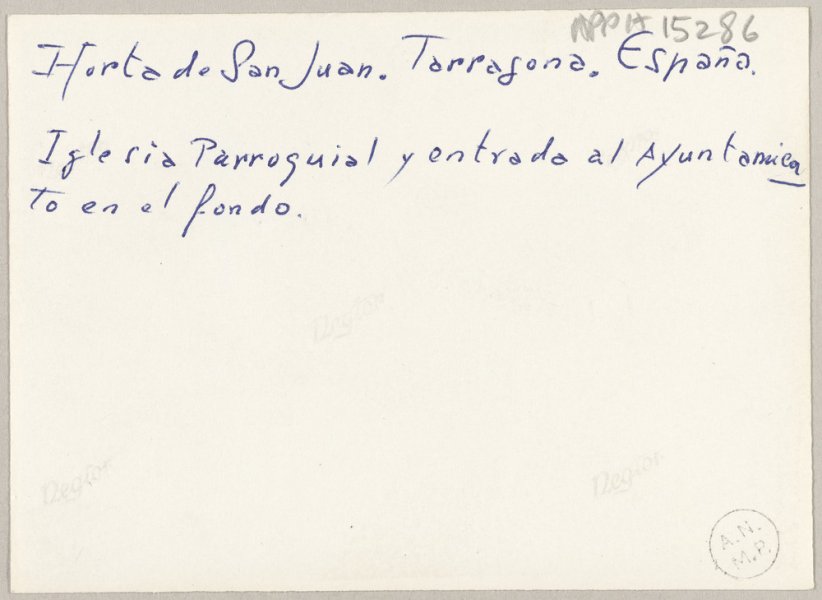 APPH 15286
Horta de San Juan. Tarragona. España.
Iglesia Parroquial y entrada al Ayuntamien
to en el fondo.
Negtor
Negtor
Negtor
A.N.
M.P.